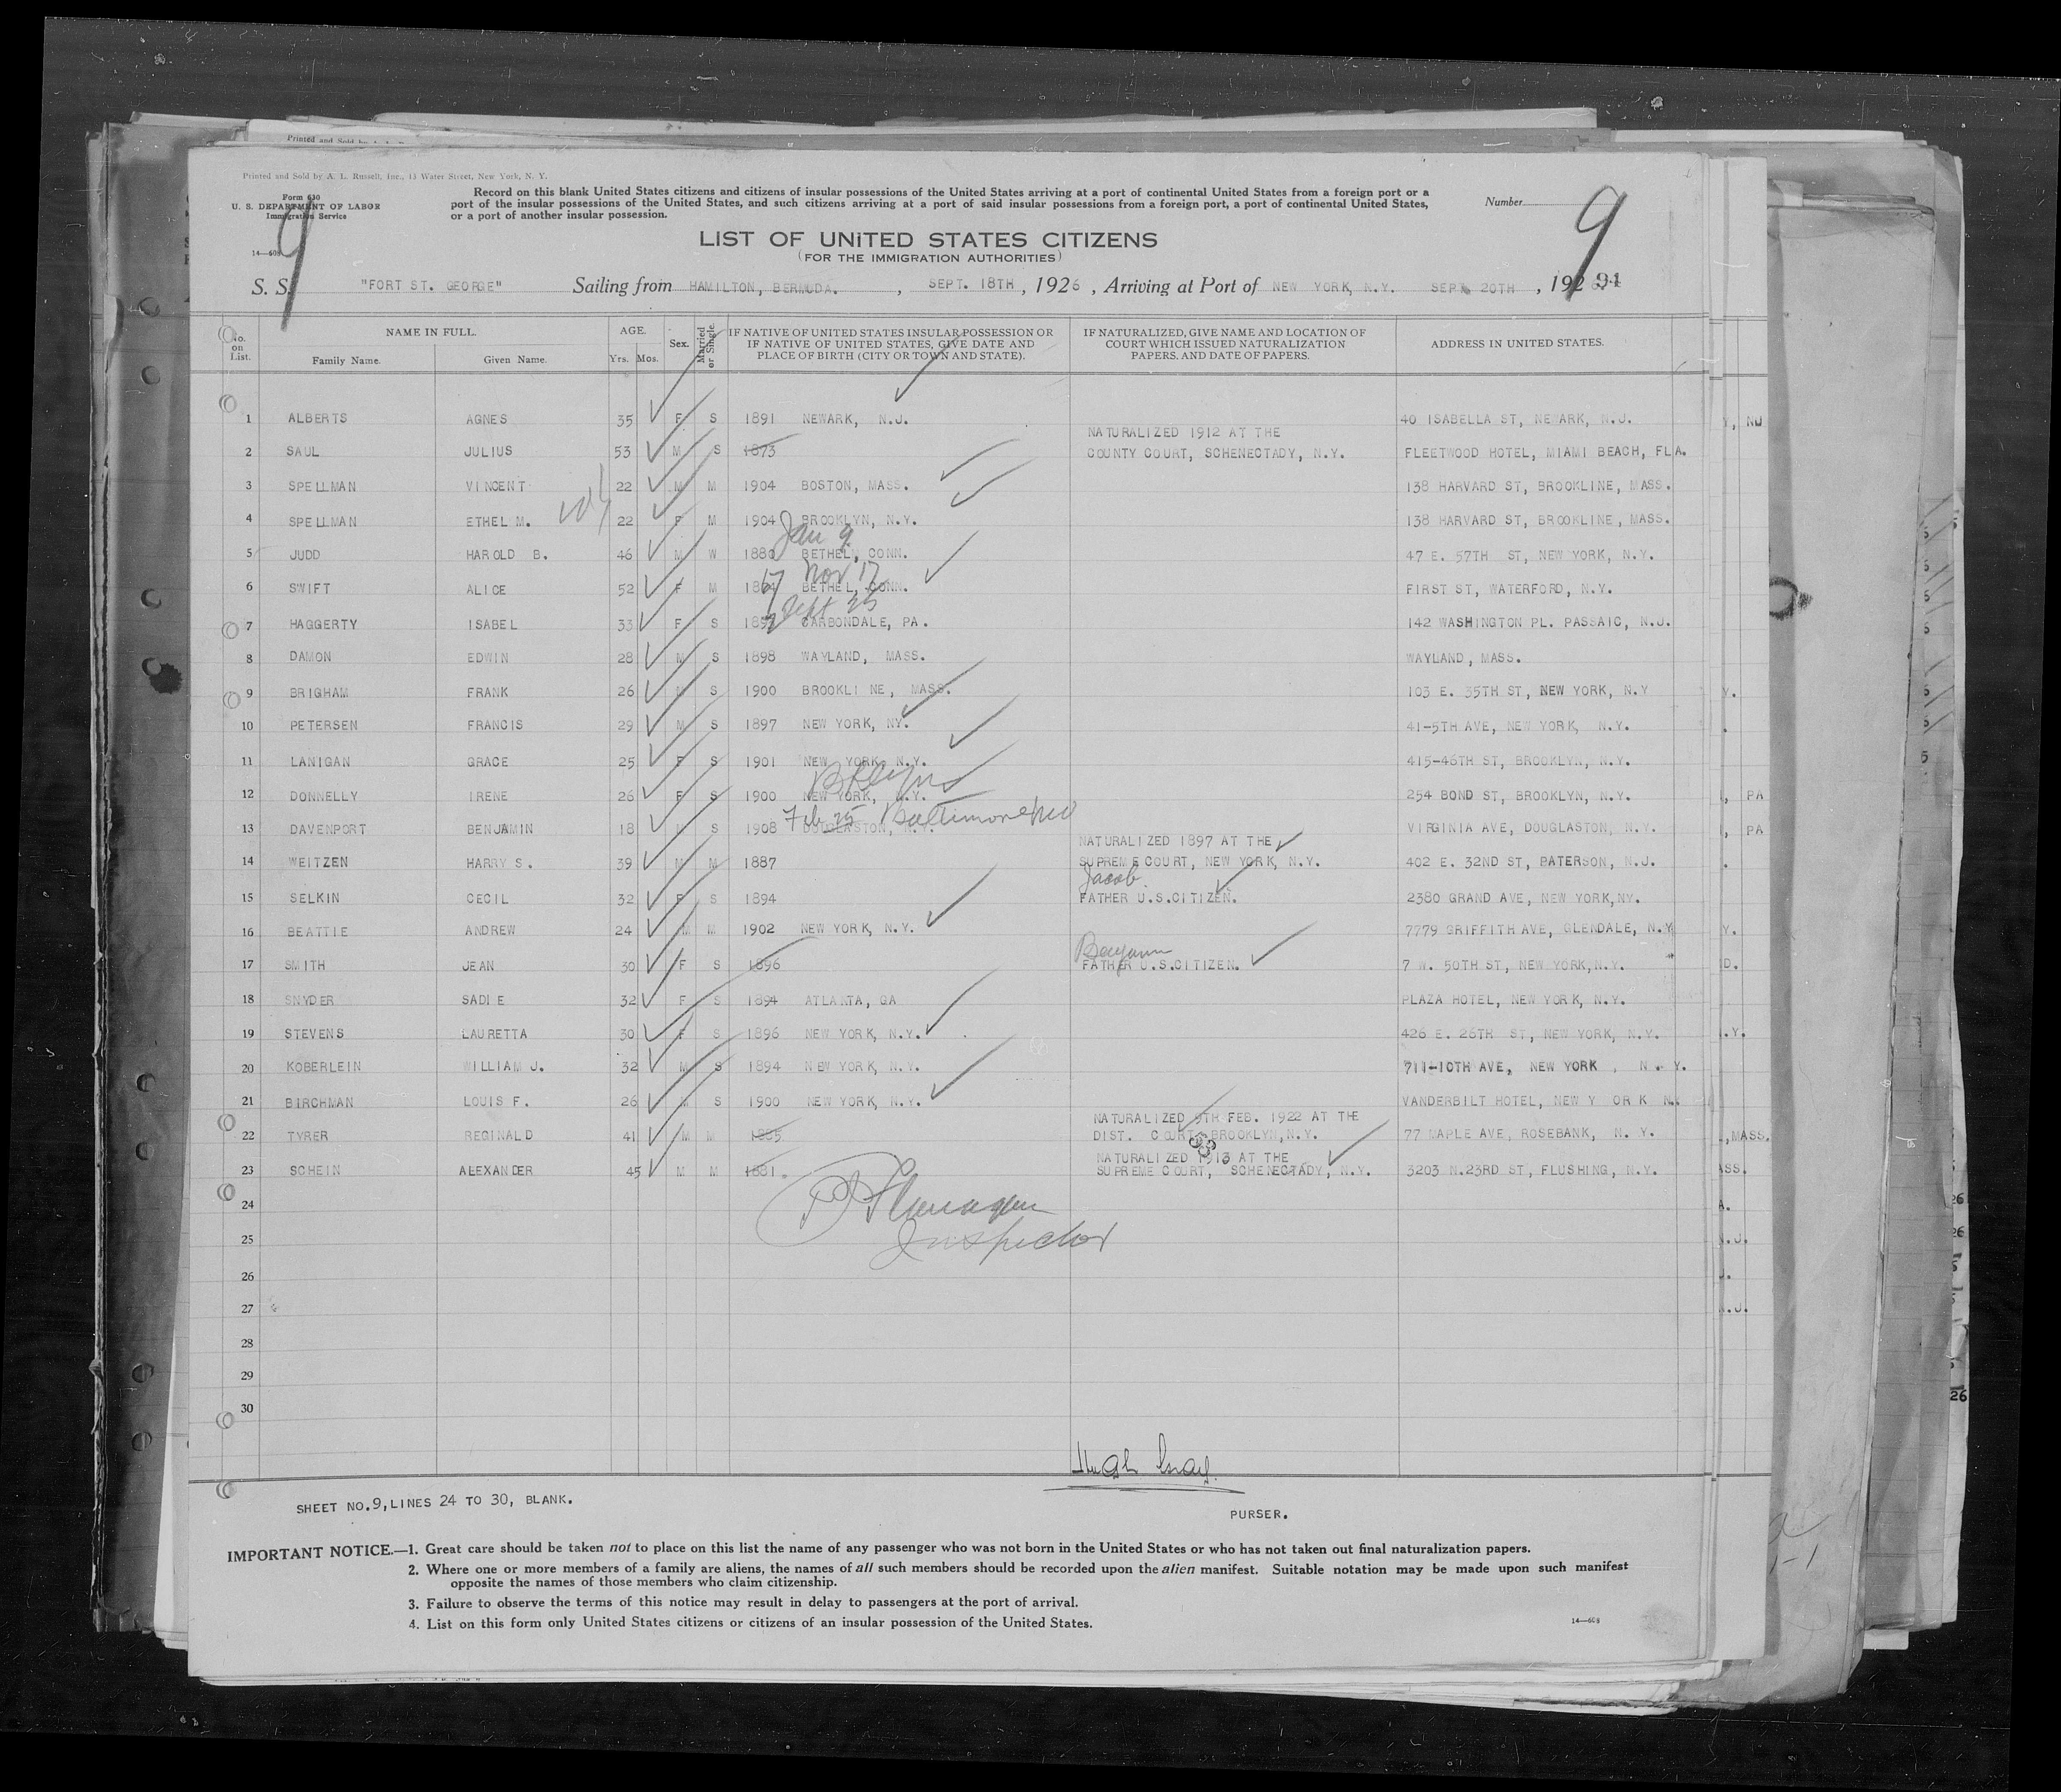 Printed and Sold by
Printed and Sold by A. L. Russell, Inc., 13 Water Street, New York, N. Y.
Form 630
U. S. DEPARTMENT OF LABOR
Immigration Service
14—608
9
Record on this blank United States citizens and citizens of insular possessions of the United States arriving at a port of continental United States from a foreign port or a
port of the insular possessions of the United States, and such citizens arriving at a port of said insular possessions from a foreign port, a port of continental United States,
or a port of another insular possession.
Number
9
LIST OF UNITED STATES CITIZENS
(FOR THE IMMIGRATION AUTHORITIES)
S. S. "FORT ST. GEORGE" Sailing from HAMILTON, BERMUDA. , SEPT. 18TH , 1926 , Arriving at Port of NEW YORK, N.Y. SEPT. 20TH , 1926 91
No. on List. NAME IN FULL. Family Name. Given Name. AGE. Yrs. Mos. Sex. Married or Single. IF NATIVE OF UNITED STATES INSULAR POSSESSION OR IF NATIVE OF UNITED STATES, GIVE DATE AND PLACE OF BIRTH (CITY OR TOWN AND STATE). IF NATURALIZED, GIVE NAME AND LOCATION OF COURT WHICH ISSUED NATURALIZATION PAPERS, AND DATE OF PAPERS. ADDRESS IN UNITED STATES.
1 ALBERTS AGNES 35 F S 1891 NEWARK, N.J. 40 ISABELLA ST, NEWARK, N.J.
NATURALIZED 1912 AT THE
2 SAUL JULIUS 53 M S 1873 COUNTY COURT, SCHENECTADY, N.Y. FLEETWOOD HOTEL, MIAMI BEACH, FLA.
3 SPELLMAN VINCENT 22 M M 1904 BOSTON, MASS. 138 HARVARD ST, BROOKLINE, MASS.
4 SPELLMAN ETHEL M. 22 F M 1904 BROOKLYN, N.Y. 138 HARVARD ST, BROOKLINE, MASS.
Jan 9
5 JUDD HAROLD B. 46 M W 1880 BETHEL, CONN. 47 E. 57TH ST, NEW YORK, N.Y.
Nov 17
6 SWIFT ALICE 52 F M 1864 BETHEL, CONN. FIRST ST, WATERFORD, N.Y.
Sept 25
7 HAGGERTY ISABEL 33 F S 1892 CARBONDALE, PA. 142 WASHINGTON PL. PASSAIC, N.J.
8 DAMON EDWIN 28 M S 1898 WAYLAND, MASS. WAYLAND, MASS.
9 BRIGHAM FRANK 26 M S 1900 BROOKLINE, MASS. 103 E. 35TH ST, NEW YORK, N.Y
10 PETERSEN FRANCIS 29 M S 1897 NEW YORK, NY. 41-5TH AVE, NEW YORK, N.Y.
11 LANIGAN GRACE 25 F S 1901 NEW YORK, N.Y. 415-46TH ST, BROOKLYN, N.Y.
Bklyn
12 DONNELLY IRENE 26 F S 1900 NEW YORK, N.Y. 254 BOND ST, BROOKLYN, N.Y.
Feb 25 Baltimore Md
13 DAVENPORT BENJAMIN 18 M S 1908 DOUGLASTON, N.Y. VIRGINIA AVE, DOUGLASTON, N.Y.
NATURALIZED 1897 AT THE
14 WEITZEN HARRY S. 39 M M 1887 SUPREME COURT, NEW YORK, N.Y. 402 E. 32ND ST, PATERSON, N.J.
Jacob
15 SELKIN CECIL 32 F S 1894 FATHER U.S.CITIZEN. 2380 GRAND AVE, NEW YORK,NY.
16 BEATTIE ANDREW 24 M M 1902 NEW YORK, N.Y. 7779 GRIFFITH AVE, GLENDALE, N.Y
Benjamin
17 SMITH JEAN 30 F S 1896 FATHER U.S.CITIZEN. 7 W. 50TH ST, NEW YORK,N.Y.
18 SNYDER SADIE 32 F S 1894 ATLANTA, GA PLAZA HOTEL, NEW YORK, N.Y.
19 STEVENS LAURETTA 30 F S 1896 NEW YORK, N.Y. 426 E. 26TH ST, NEW YORK, N.Y.
20 KOBERLEIN WILLIAM J. 32 M S 1894 NEW YORK, N.Y. 711-10TH AVE, NEW YORK , N. Y.
21 BIRCHMAN LOUIS F. 26 M S 1900 NEW YORK, N.Y. VANDERBILT HOTEL, NEW YORK N.
NATURALIZED 9TH FEB. 1922 AT THE
22 TYRER REGINALD 41 M M 1885 DIST. COURT, BROOKLYN,N.Y. 77 MAPLE AVE, ROSEBANK, N. Y.
NATURALIZED 1913 AT THE
23 SCHEIN ALEXANDER 45 M M 1881. SUPREME COURT, SCHENECTADY, N.Y. 3203 N.23RD ST, FLUSHING, N.Y.
24
25 Inspector
26
27
28
29
30
Hugh Gray
SHEET NO.9,LINES 24 TO 30, BLANK.
PURSER.
IMPORTANT NOTICE.—1. Great care should be taken not to place on this list the name of any passenger who was not born in the United States or who has not taken out final naturalization papers.
2. Where one or more members of a family are aliens, the names of all such members should be recorded upon the alien manifest. Suitable notation may be made upon such manifest
opposite the names of those members who claim citizenship.
3. Failure to observe the terms of this notice may result in delay to passengers at the port of arrival.
4. List on this form only United States citizens or citizens of an insular possession of the United States.
14—608